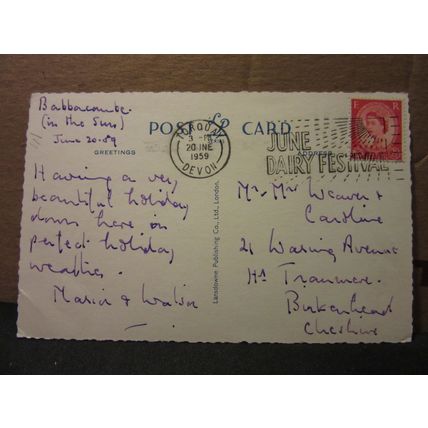 Babbacombe.
(in the Sun)
June 20-59
POST LP CARD
GREETINGS
ADDRESS
TORQUAY
20 JNE
1959
DEVON
JUNE
DAIRY FESTIVAL
E R
Having a very
beautiful holiday
down here in
perfect holiday
weather.
Lansdowne Publishing Co., Ltd., London.
Mr. Mrs Weaver +
Caroline
21 Waring Avenue
Tranmere.
Birkenhead
Cheshire